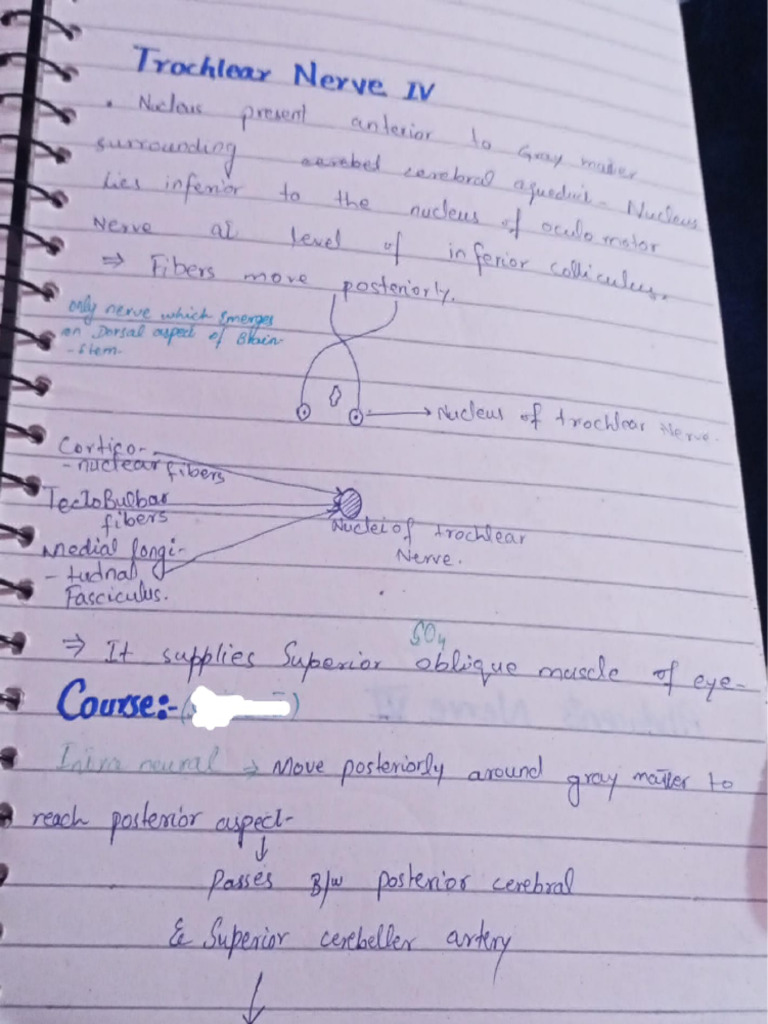 Trochlear Nerve IV
• Nucleus present anterior to Gray matter
surrounding cerebral aqueduct. Nucleus
lies inferior to the nucleus of oculomotor
Nerve at level of inferior colliculus.
⇒ Fibers move posteriorly.
only nerve which emerges
on Dorsal aspect of Brain
-stem.
Nucleus of trochlear Nerve.
Cortico-
-nuclear fibers
TectoBulbar
fibers
Nuclei of trochlear
Nerve.
Medial longi-
-tudnal
Fasciculus.
SO4
⇒ It supplies Superior oblique muscle of eye-
Course:-
Intra neural → Move posteriorly around gray matter to
reach posterior aspect-
↓
Passes B/w posterior cerebral
& Superior cerebeller artery
↓